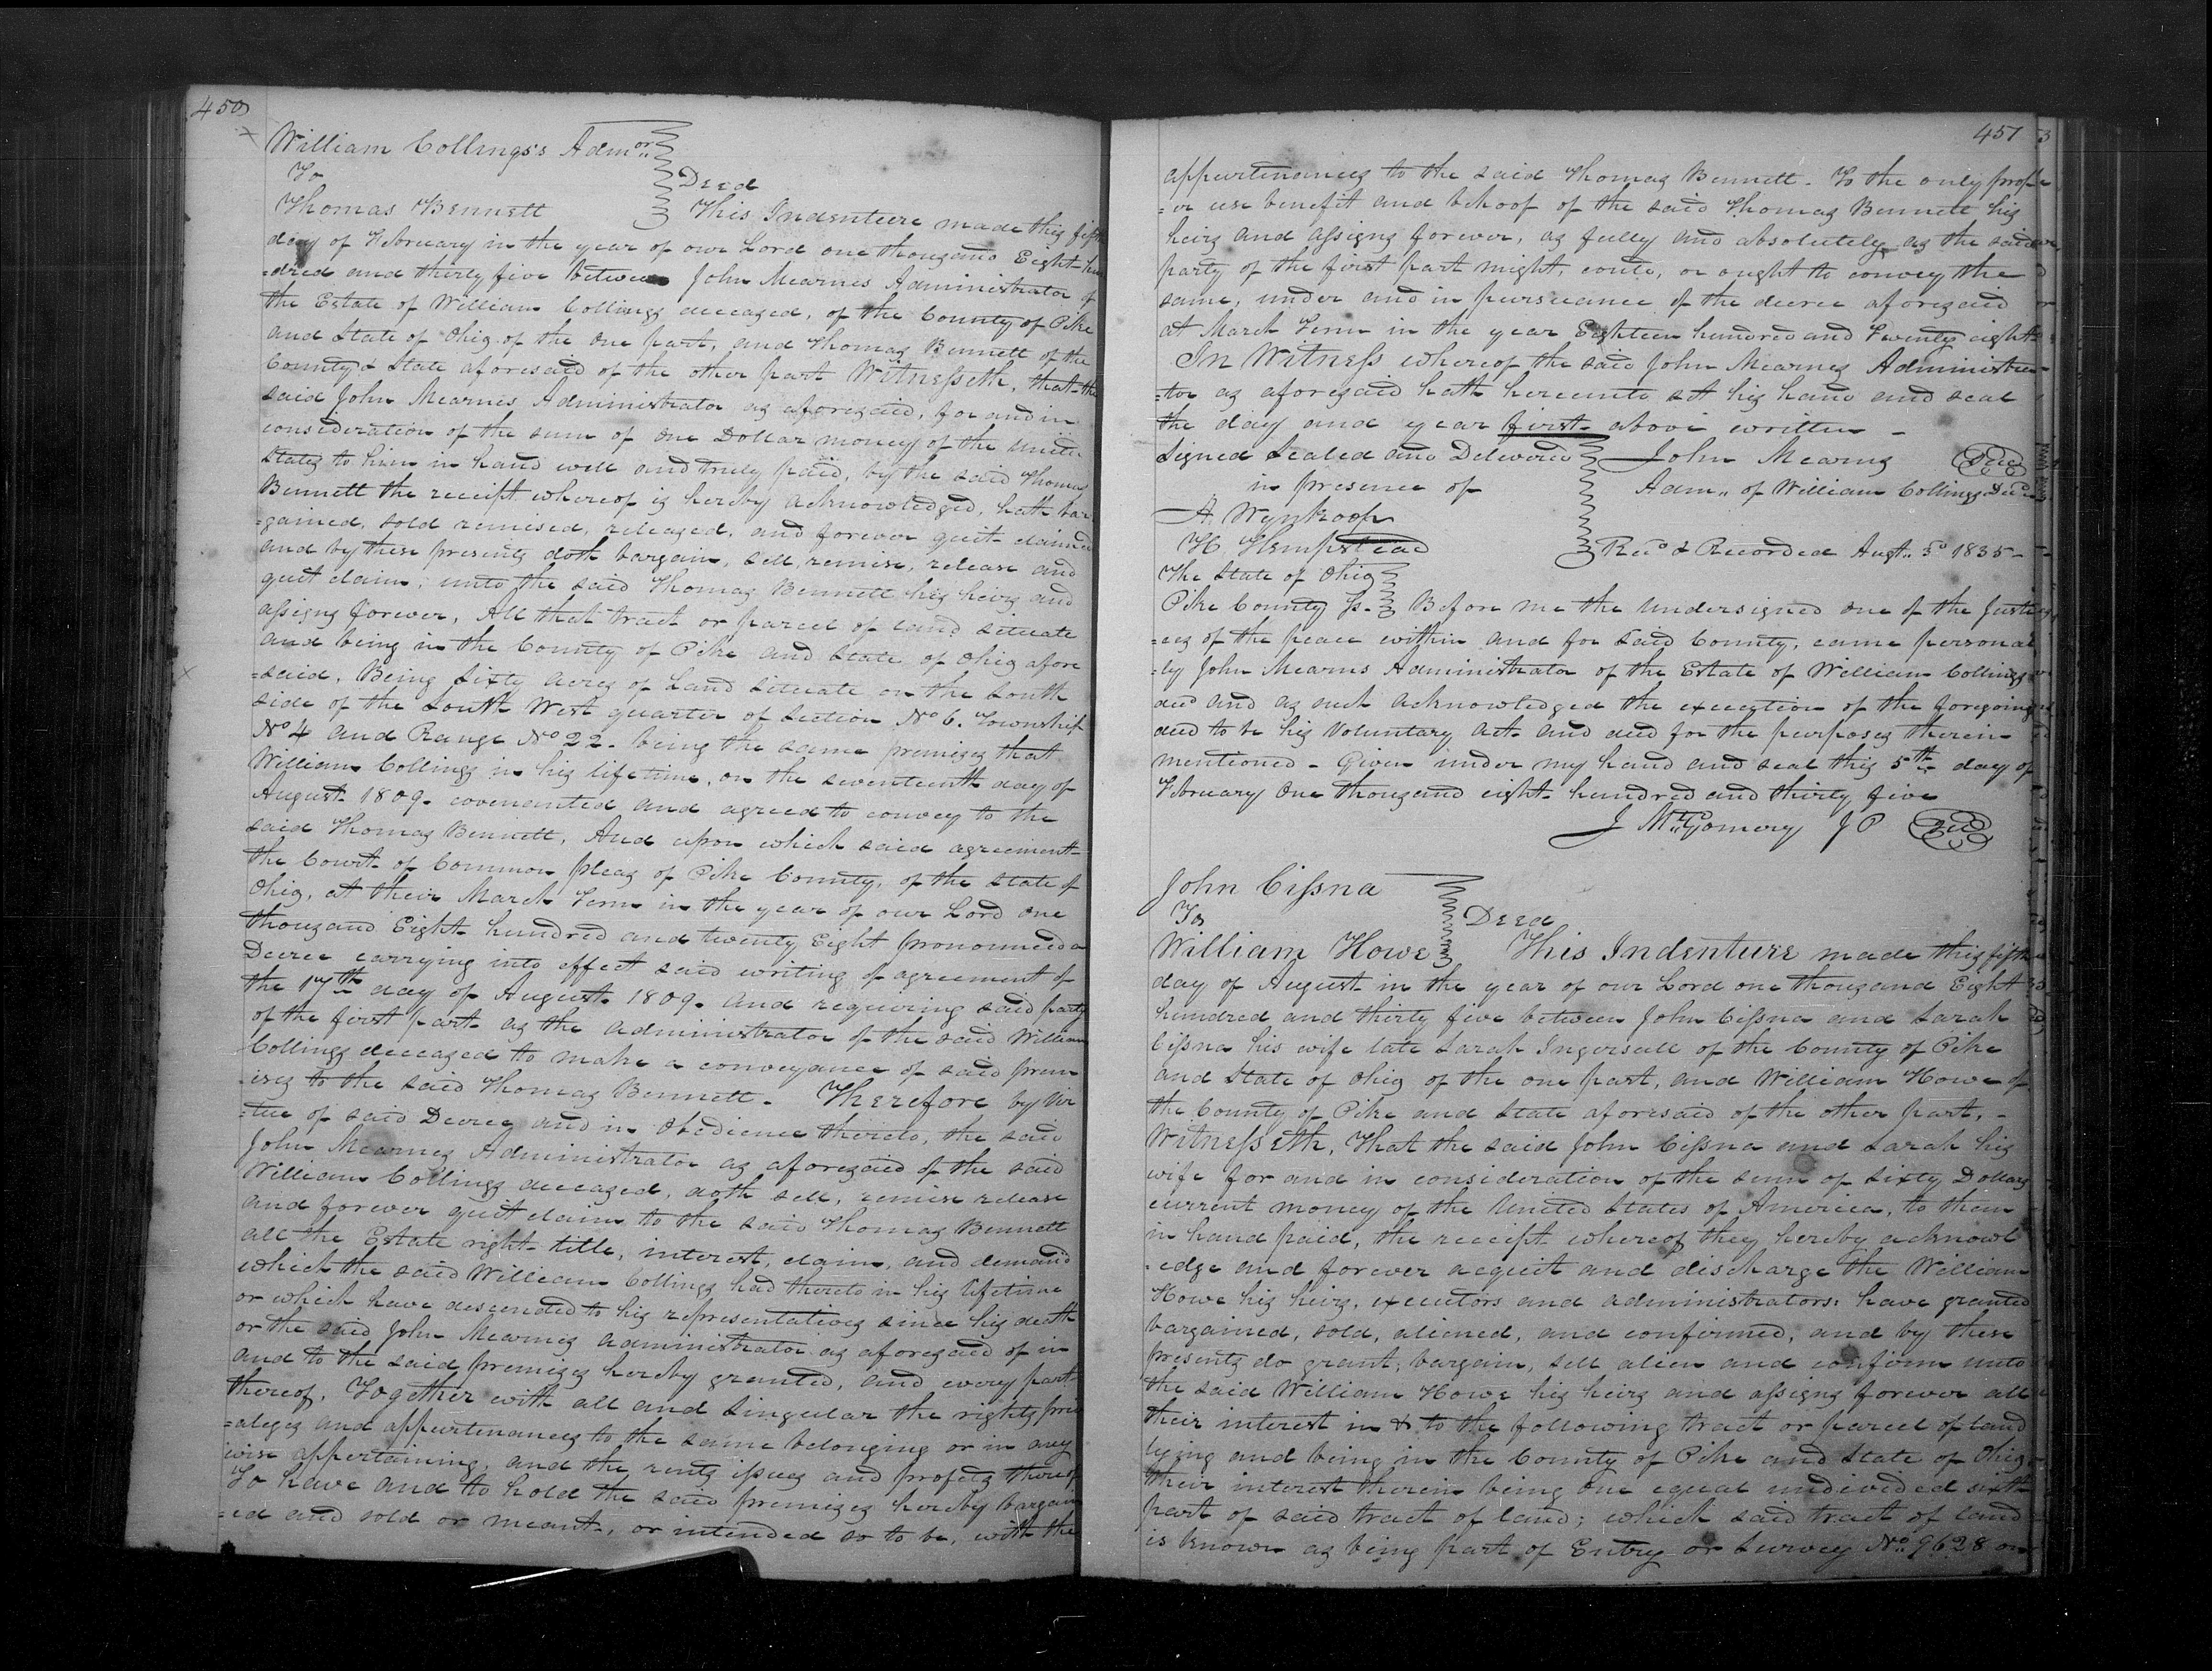 450
William Collings's Admor
To
Deed
Thomas Bennett
This Indenture made this fifth
day of February in the year of our Lord one thousand Eight hun
=dred and thirty five between John Mearnes Administrator of
the Estate of William Collings deceased, of the County of Pike
and State of Ohio of the one part, and Thomas Bennett of the
County & State aforesaid of the other part Witnesseth, that the
said John Mearnes Administrator as aforesaid, for and in
consideration of the sum of one Dollar money of the United
States to him in hand well and truly paid, by the said Thomas
Bennett the receipt whereof is hereby acknowledged, hath bar
=gained, sold remised, released, and forever quit claimed
and by these presents doth bargain, sell, remise, release and
quit claim, unto the said Thomas Bennett his heirs and
assigns forever, All that tract or parcel of land situate
and being in the County of Pike and State of Ohio afore
=said, Being Sixty acres of Land situate on the South
side of the South West quarter of Section No 6. Township
No 4 and Range No 22. being the same premises that
William Collings in his lifetime, on the seventeenth day of
August 1809. covenanted and agreed to convey to the
said Thomas Bennett, And upon which said agreement
the Court of Common pleas of Pike County, of the State of
Ohio, at their March Term in the year of our Lord one
thousand Eight hundred and twenty Eight pronounced a
Decree carrying into effect said writing of agreement of
the 17th day of August 1809. and requiring said party
of the first part as the administrator of the said William
Collings deceased to make a conveyance of said prem
=ises to the said Thomas Bennett. Therefore by vir
=tue of said Decree and in obedience thereto, the said
John Mearnes Administrator as aforesaid of the said
William Collings deceased, doth sell, remise release
and forever quit claim to the said Thomas Bennett
all the Estate right title, interest, claim, and demand
which the said William Collings had thereto in his lifetime
or which have descended to his representatives since his death
or the said John Mearnes administrator as aforesaid of in
and to the said premises hereby granted, and every part
thereof, Together with all and singular the rights priv
=aleges and appurtenances to the same belonging or in any
wise appertaining, and the rents issues and profits thereof
To have and to hold the said premises hereby bargain
=ed and sold or meant, or intended so to be, with the
451
appurtenances to the said Thomas Bennett. To the only prop
=er use benefit and behoof of the said Thomas Bennett his
heirs and assigns forever, as fully and absolutely as the said
party of the first part might, could, or ought to convey the
same, under and in pursuance of the decree aforesaid
at March Term in the year Eighteen hundred and Twenty eight
In Witness whereof the said John Mearnes Administra
=tor as aforesaid hath hereunto set his hand and seal
the day and year first above written -
Signed Sealed and Delivered
John Mearns Seal
in presence of
Adm.. of William Collings Decd
A. Wynkoop
H Hempstead
Recd & Recorded Augt.. 3d 1835-
The State of Ohio
Pike County Ss. Before me the undersigned one of the Justi
=ces of the peace within and for said County, came personal
=ly John Mearns Administrator of the Estate of William Collings
decd and as such acknowledged the execution of the foregoing
deed to be his Voluntary act and deed for the purposes therein
mentioned - Given under my hand and seal this 5th day of
February One thousand eight hundred and thirty five
J MtGomery JP Seal
John Cissna
To
Deed
William Howe
This Indenture made this fifth
day of August in the year of our Lord one thousand Eight
hundred and thirty five between John Cissna and Sarah
Cissna his wife late Sarah Ingersull of the County of Pike
and State of Ohio of the one part, and William Howe of
the County of Pike and State aforesaid of the other part, -
Witnesseth, That the said John Cissna and Sarah his
wife for and in consideration of the sum of Sixty Dollars
current money of the United States of America, to them
in hand paid, the receipt whereof they hereby acknowl
=edge and forever acquit and discharge the William
Howe his heirs, executors and administrators: have granted
bargained, sold, aliened, and confirmed, and by these
presents do grant, bargain, sell alien and confirm unto
the said William Howe his heirs and assigns forever all
their interest in & to the following tract or parcel of land
lying and being in the County of Pike and State of Ohio
their interest therein being one equal undivided sixth
part of said tract of land; which said tract of land
is known as being part of Entry or Survey No. 9628 on